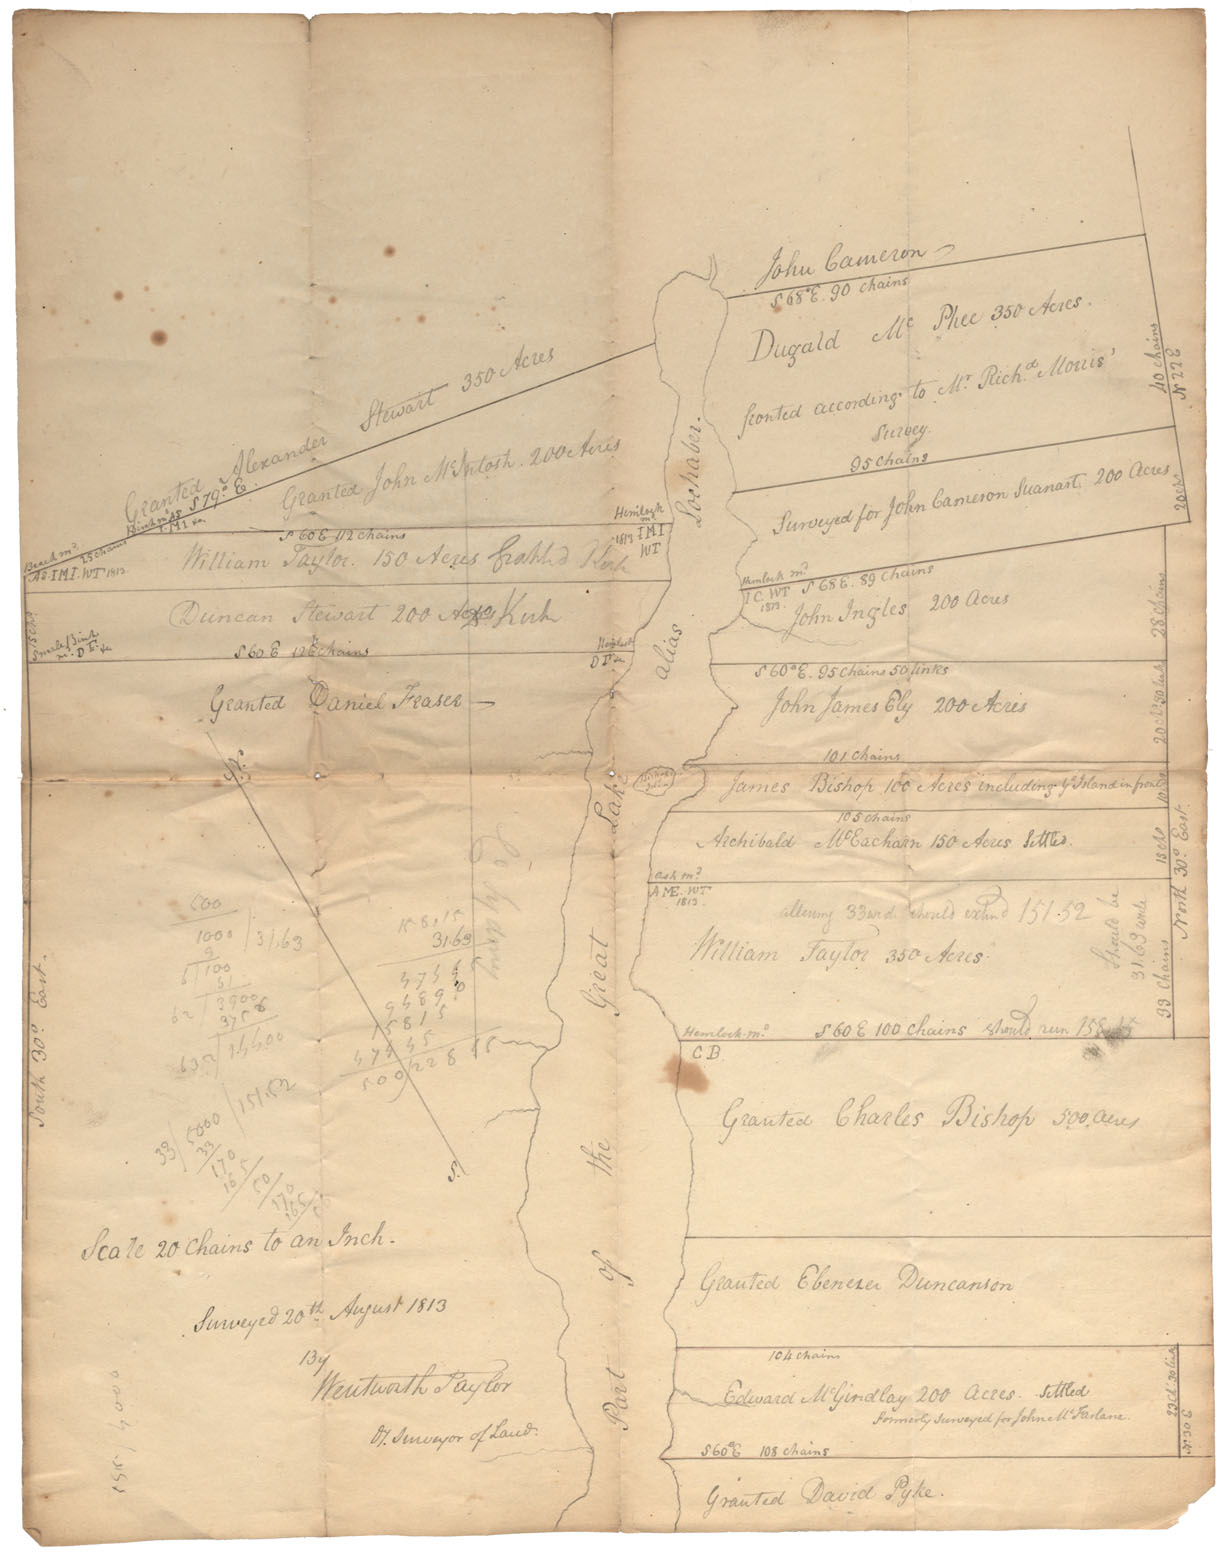 John Cameron
S 68° E. 90 Chains
Dugald Mc Phee 350 Acres.
fronted according to Mr. Rich.d Morris'
Survey.
40 Chains
N 22 E
95 Chains
Surveyed for John Cameron Suanart. 200 Acres
20 chs
Hemlock md
I C. WT
1813.
S 68 E. 89 Chains
John Ingles 200 Acres
28 Chains
S 60° E. 95 Chains 50 links
John James Ely 200 Acres
20 chs 50 links
101 Chains
James Bishop 100 Acres including ye Island in front
105 Chains
Archibald McEacharn 150 Acres Settled.
15 chs
North 30° East.
ash md
A ME. WT
1813.
allowing 33 wd. should extend 151.52
William Taylor 350 Acres.
Should be
31.63 wide
33 Chains
Hemlock md
S 60 E 100 Chains should run 158
C B
Granted Charles Bishop 500 acres
Granted Ebenezer Duncanson
104 Chains
Edward McGindlay 200 acres. Settled
formerly surveyed for John McFarlane.
N 30 E
S 60° E 108 Chains
Granted David Pyke.
Granted Alexander Stewart 350 Acres
S 79° E.
Granted John McIntosh. 200 Acres
Beech md
25 Chains
AS. IMI. WT 1813
S 60 E 112 Chains
Hemlock
md
1813 IMI
WT
William Taylor. 150 Acres
Kirk
Duncan Stewart 200 Acres Kirk
15 chs
S 60 E 12 Chains
Hemlock
Granted Daniel Fraser
N.
S.
South 30° East.
Part of the Great Lake alias Lochaber.
500
1000 31,63
9
6 100
61
62 3900
3756
632 14400
158,15
31.63
47445
94890
15815
47445
33 5000 151.52
33
170
165
50
170
165
Scale 20 Chains to an Inch.
Surveyed 20th August 1813
By
Wentworth Taylor
Dy. Surveyor of Land.